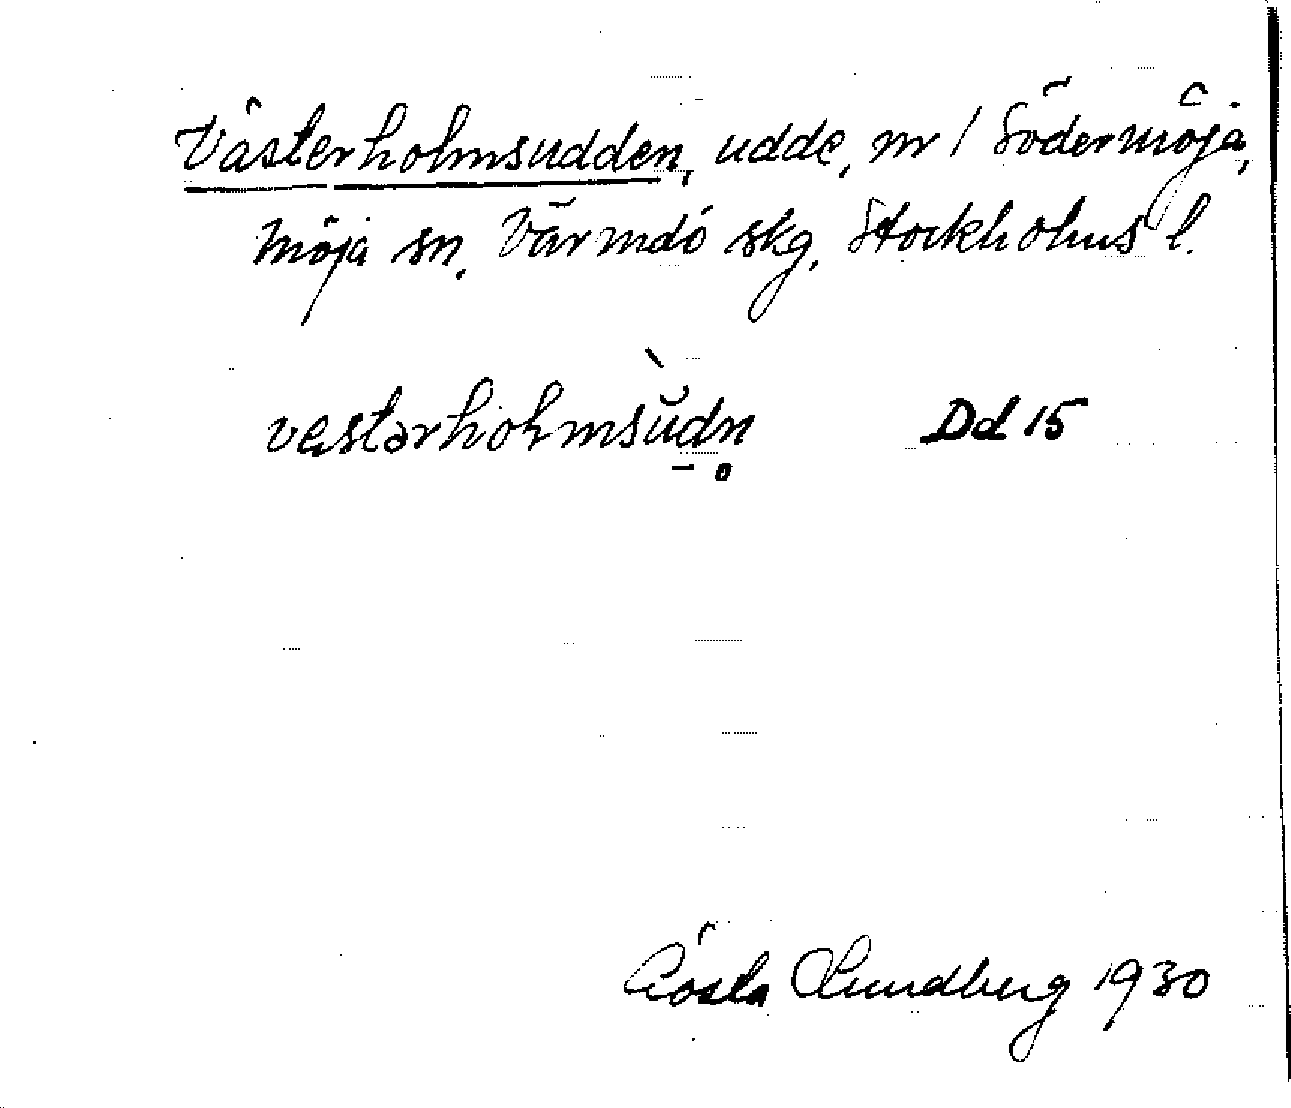 Västerholmsudden, udde, nr 1 Södermöja,
Möja sn, Värmdö skg, Stockholms l.
vestərholmsùdn̥ Dd 15
Gösta Lundberg 1930